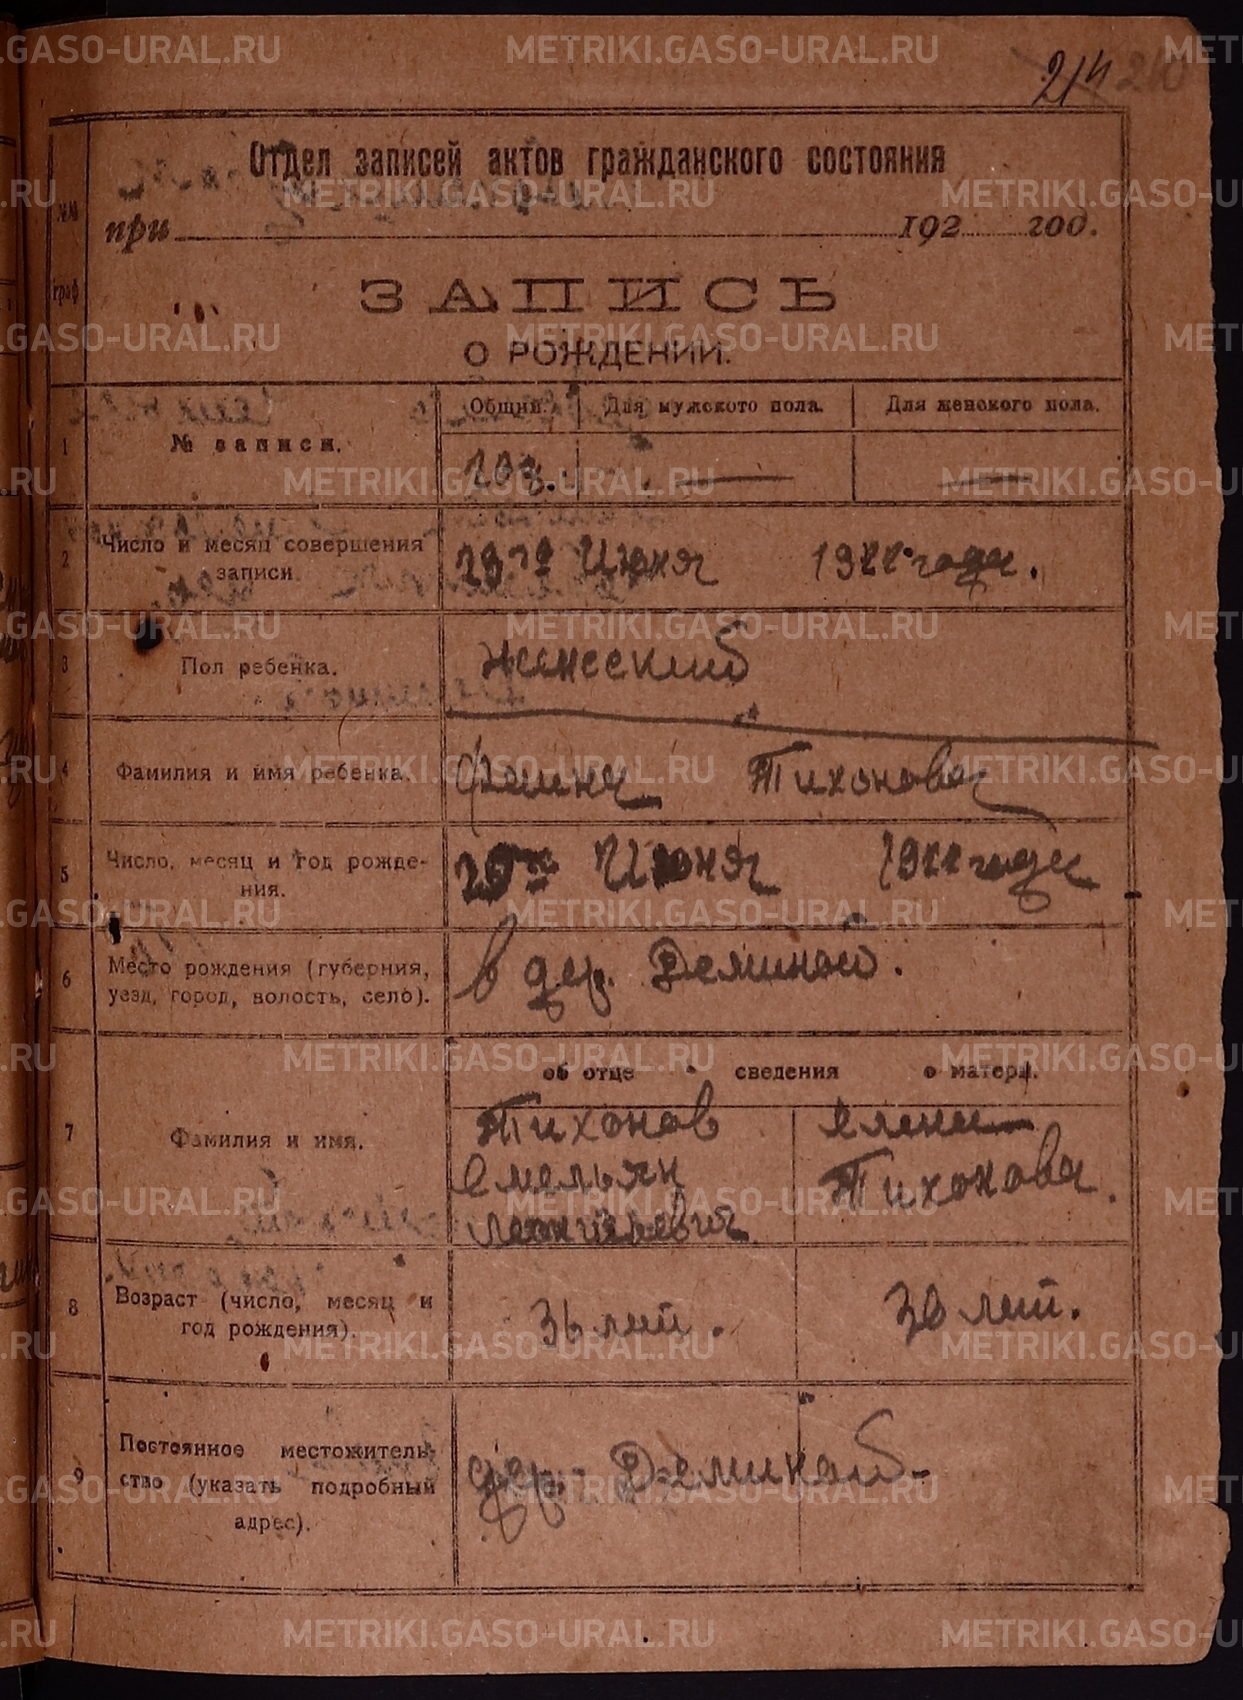 214 210
Отдел записей актов гражданского состояния
№№ граф
при 192 год.
ЗАПИСЬ
О РОЖДЕНИИ.
1 № записи. Общий. Для мужского пола. Для женского пола.
203.
2 Число и месяц совершения записи 29го Июня 1922 года.
3 Пол ребенка. Женский
4 Фамилия и имя ребенка. Фаина Тихонова
5 Число, месяц и год рождения. Июня 1922 года
6 Место рождения (губерния, уезд, город, волость, село). в дер. Деминой.
об отце сведения о матери.
7 Фамилия и имя. Тихонов Елена
Емельян Тихонова.
8 Возраст (число, месяц и год рождения). 36 лет. 36 лет.
9 Постоянное местожительство (указать подробный адрес). дер. Деминой-
METRIKI.GASO-URAL.RU